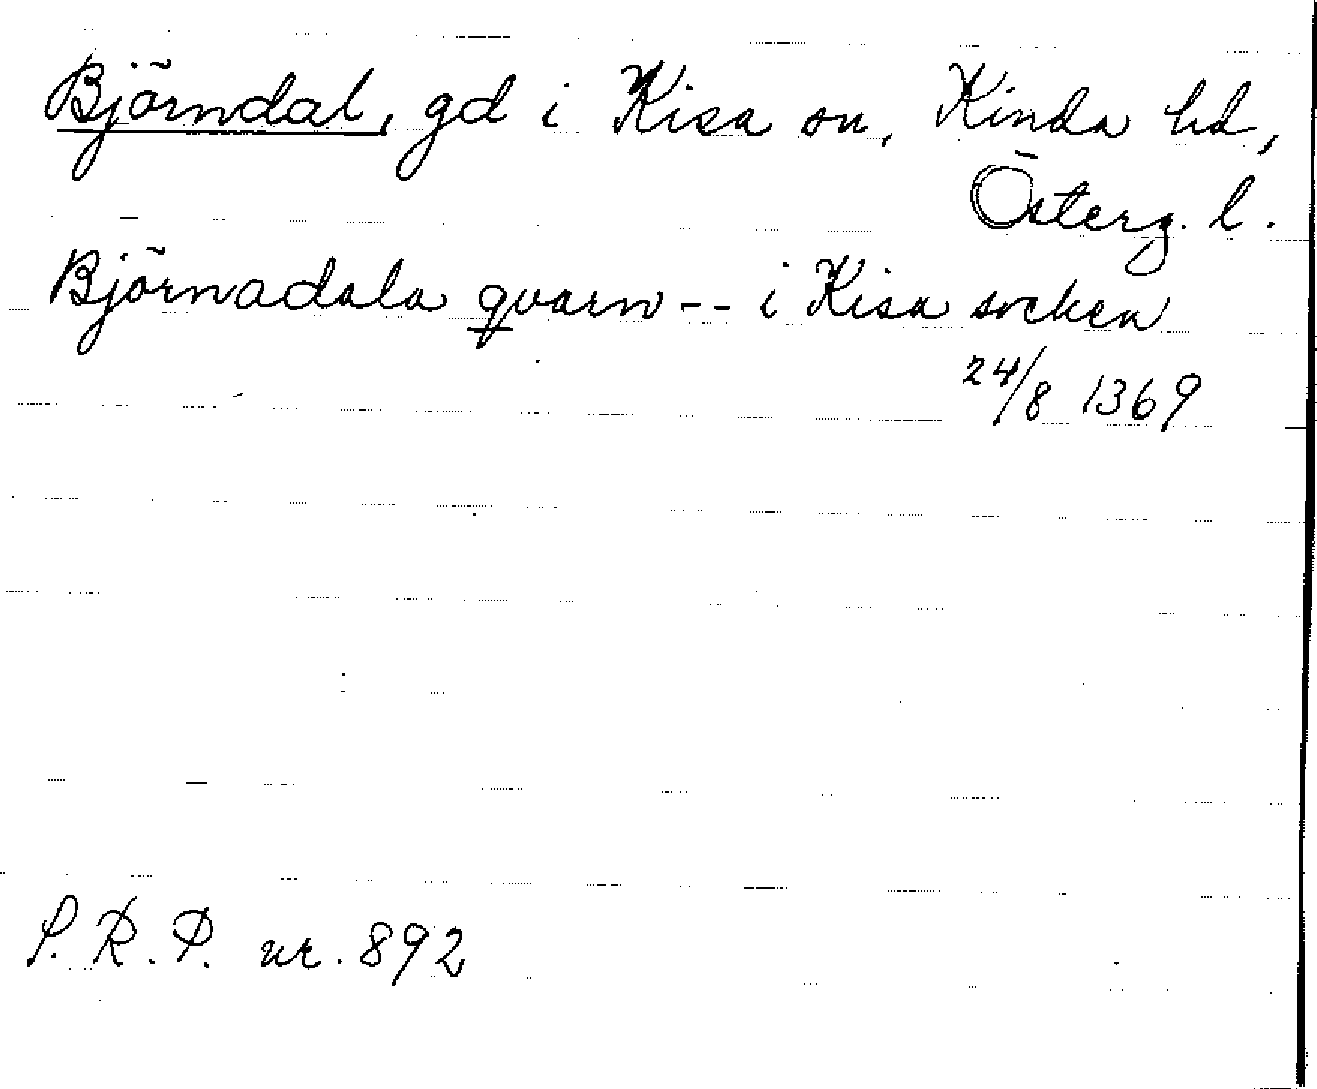 Björndal, gd i Kisa sn, Kinda hd,
Österg. l.
Björnadala qvarn -- i Kisa socken
24/8 1369
S.R.P. nr. 892